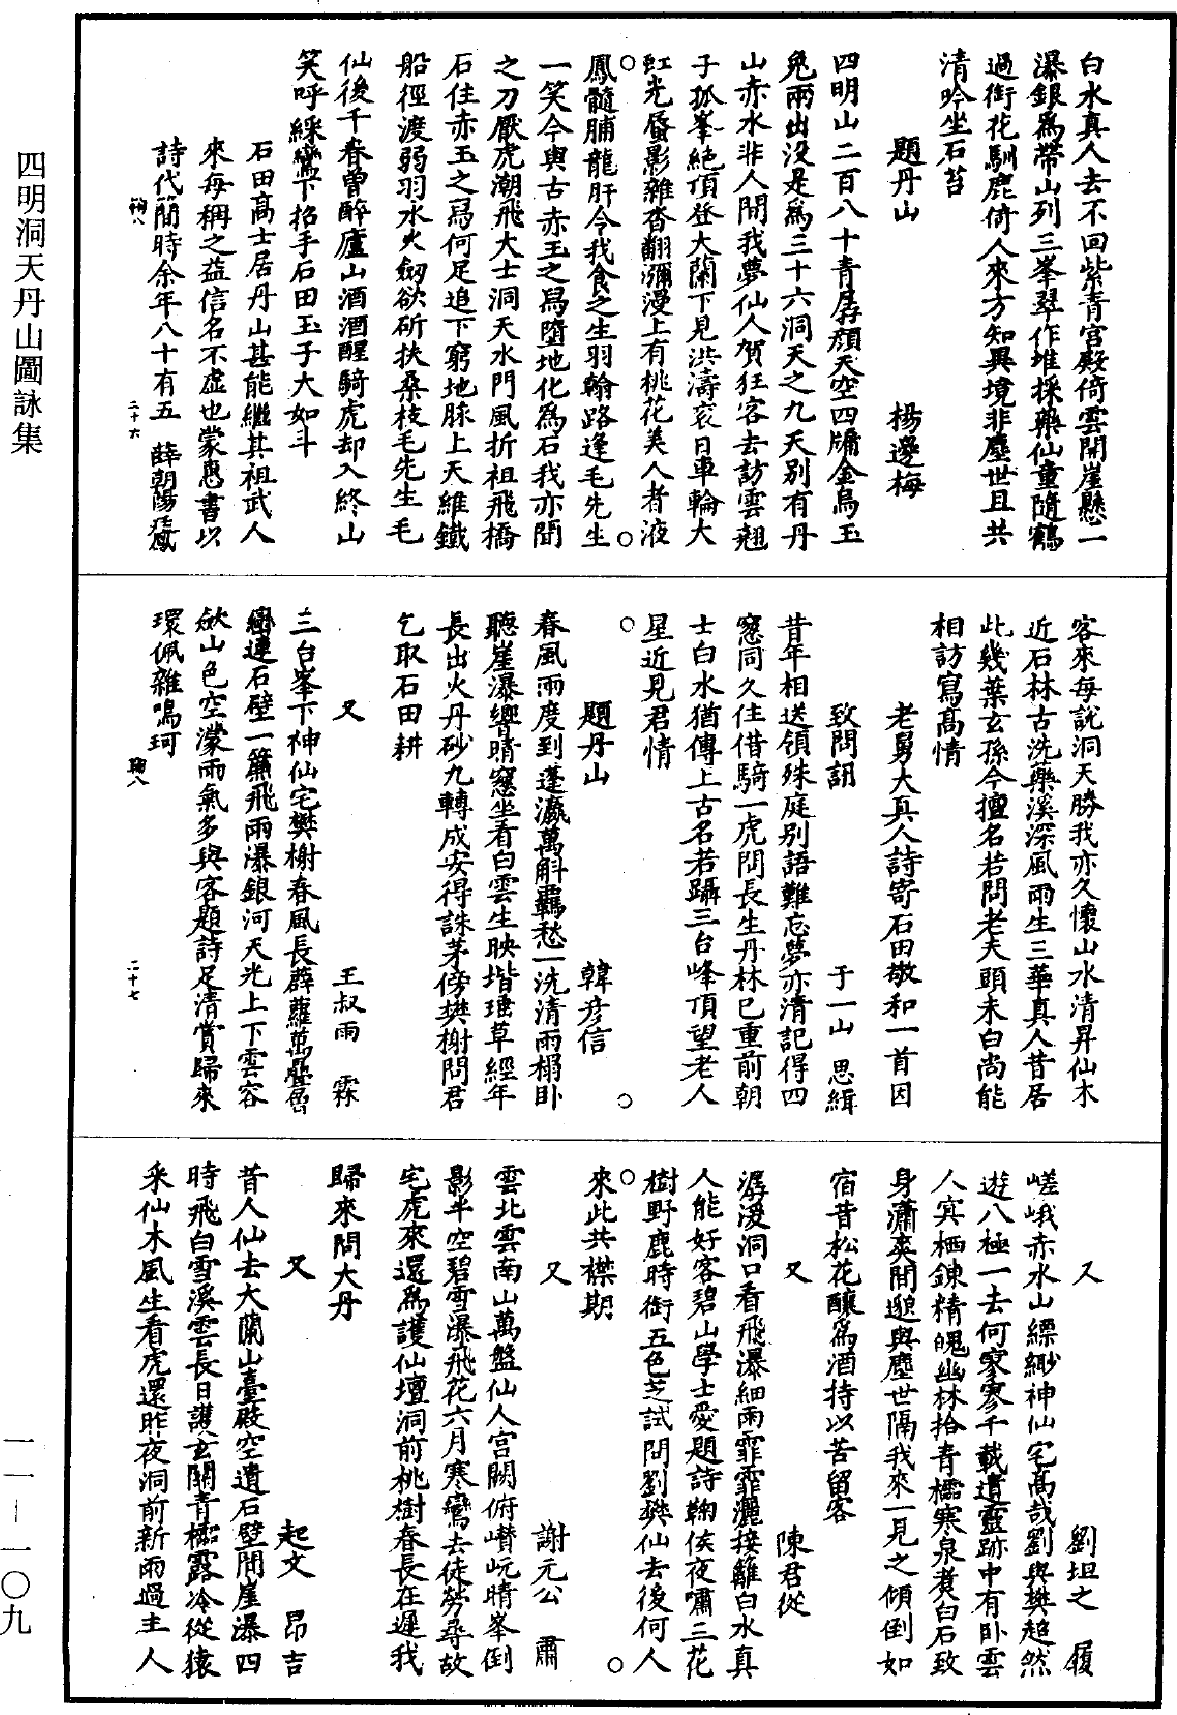 四明洞天丹山圖詠集
白水真人去不回紫青宮殿倚雲開崖懸一
瀑銀為帶山列三峯翠作堆採藥仙童隨鶴
過銜花馴鹿倚人來方知異境非塵世且共
清吟坐石苔
題丹山　楊邊梅
四明山二百八十青孱顏天空四牖金烏玉
兔兩出沒是為三十六洞天之九天別有丹
山赤水非人間我夢仙人賀狂客去訪雲翹
子孤峯絕頂登大蘭下見洪濤袞日車輪大
虹光蜃影雜沓翻瀰漫上有桃花美人者液
鳳髓脯龍肝令我食之生羽翰路逢毛先生
一笑今與古赤玉之舄墮地化為石我亦聞
之刀厭虎潮飛大士洞天水門風折祖飛橋
石住赤玉之舄何足追下窮地脉上天維鐵
船徑渡弱羽水火劒欲斫扶桑枝毛先生毛
仙後千春曾醉廬山酒酒醒騎虎却入終山
笑呼綵鸞下招手石田玉子大如斗
石田高士居丹山甚能繼其祖武人
來每稱之益信名不虛也蒙惠書以
詩代簡時余年八十有五　薛朝陽
二十六
客來每說洞天勝我亦久懷山水清昇仙木
近石林古洗藥溪深風雨生三華真人昔居
此幾葉玄孫今擅名若問老夫頭未白尚能
相訪寫高情
老舅大真人詩寄石田敬和一首因
致問訊　于一山　思緝
昔年相送領殊庭別語難忘夢亦清記得四
窻同久住借騎一虎問長生丹林已重前朝
士白水猶傳上古名若躡三台峰頂望老人
星近見君情
題丹山　韓彥信
春風兩度到蓬瀛萬斛羈愁一洗清雨榻卧
聽崖瀑響晴窻坐看白雲生映堦瑶草經年
長出火丹砂九轉成安得誅茅傍樊榭問君
乞取石田耕
又　王叔雨　霖
三台峯下神仙宅樊榭春風長薜蘿萬疊雪
巒連石壁一簾飛雨瀑銀河天光上下雲容
斂山色空濛雨氣多與客題詩足清賞歸來
環佩雜鳴珂
二十七
又　劉坦之　履
嵯峨赤水山縹緲神仙宅高哉劉與樊超然
遊八極一去何寥寥千載遺靈跡中有卧雲
人冥栖鍊精魄幽林拾青櫺寒泉煮白石致
身瀟爽間邈與塵世隔我來一見之傾倒如
宿昔松花釀為酒持以苦留客
又　陳君從
潺湲洞口看飛瀑細雨霏霏灑接䍦白水真
人能好客碧山學士愛題詩鞠侯夜嘯三花
樹野鹿時銜五色芝試問劉樊仙去後何人
來此共襟期
又　謝元公　肅
雲北雲南山萬盤仙人宮闕俯巑岏晴峯倒
影半空碧雪瀑飛花六月寒鸞去徒勞尋故
宅虎來還為護仙壇洞前桃樹春長在遲我
歸來問大丹
又　起文　昂吉
昔人仙去大蘭山臺殿空遺石壁間崖瀑四
時飛白雪溪雲長日護玄關青櫺露冷從猿
采仙木風生看虎還昨夜洞前新雨過主人
一一—一〇九